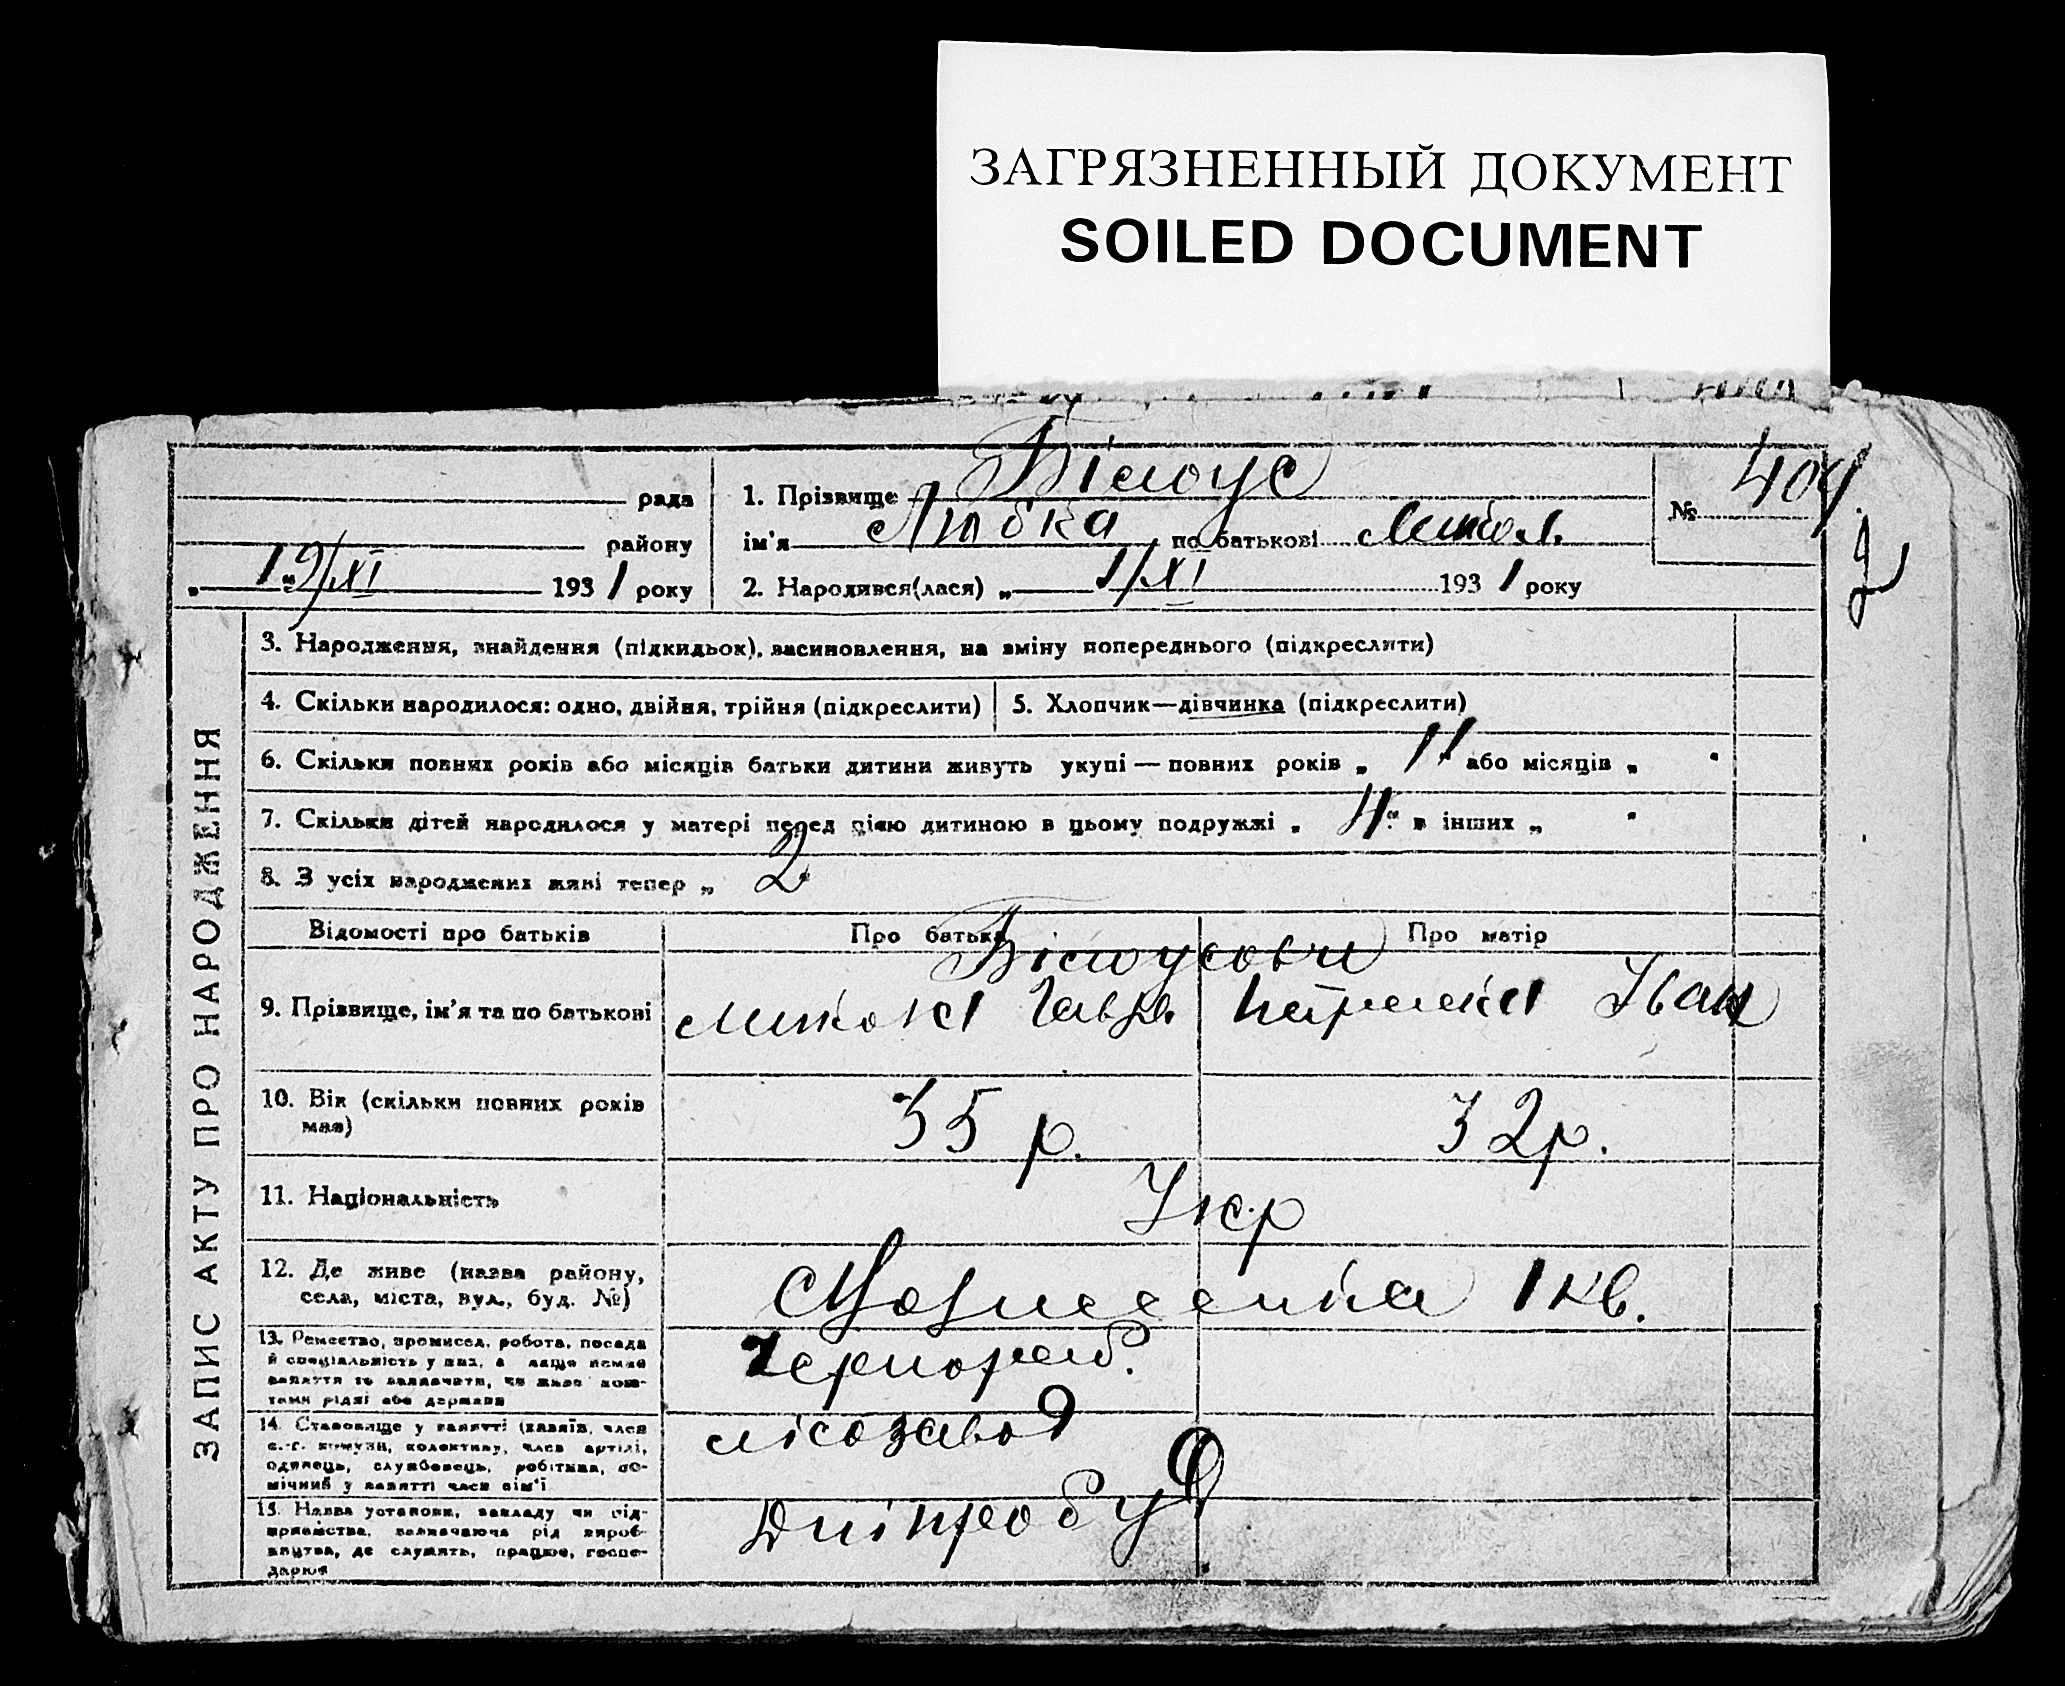 ЗАГРЯЗНЕННЫЙ ДОКУМЕНТ
SOILED DOCUMENT
рада
району
„ 19/XI 1931 року
1. Прізвище Білоус
ім'я Любка по батькові Микол.
2. Народився(лася) „ 1/XI 1931 року
№ 404
2
ЗАПИС АКТУ ПРО НАРОДЖЕННЯ
3. Народження, знайдення (підкидьок), засиновлення, на зміну попереднього (підкреслити)
4. Скільки народилося: одно, двійня, трійня (підкреслити)
5. Хлопчик—дівчинка (підкреслити)
6. Скільки повних років або місяців батьки дитини живуть укупі — повних років „ 11 " або місяців „ "
7. Скільки дітей народилося у матері перед цією дитиною в цьому подружжі „ 4 " в інших „ "
8. З усіх народжених живі тепер „ 2 "
Відомості про батьків
Про батька
Про матір
Білоусови
9. Прізвище, ім'я та по батькові
Микола Гавр.
Іван
10. Вік (скільки повних років має)
35 р.
32 р.
11. Національність
Укр
12. Де живе (назва району, села, міста, вул., буд. №)
Вознесенка 1 кв.
13. Ремество, промисел, робота, посада
й спеціальність у них, а якщо немає
заняття то зазначити, чи живе кош-
тами рідні або держави
Чорнороб.
14. Становище у занятті (хазяїн, член
с.-г. комуни, колективу, член артілі,
одинець, службовець, робітник, по-
мічний у занятті член сім'ї
лісозавод
15. Назва установи, закладу чи під-
приємства, зазначаючи рід вироб-
ництва, де служить, працює, госпо-
дарює
Дніпробуд